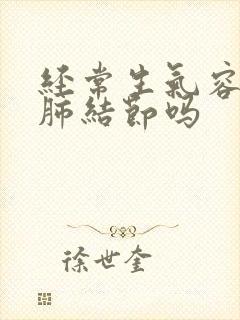 经常生氣容
肺結節吗
徐世奎